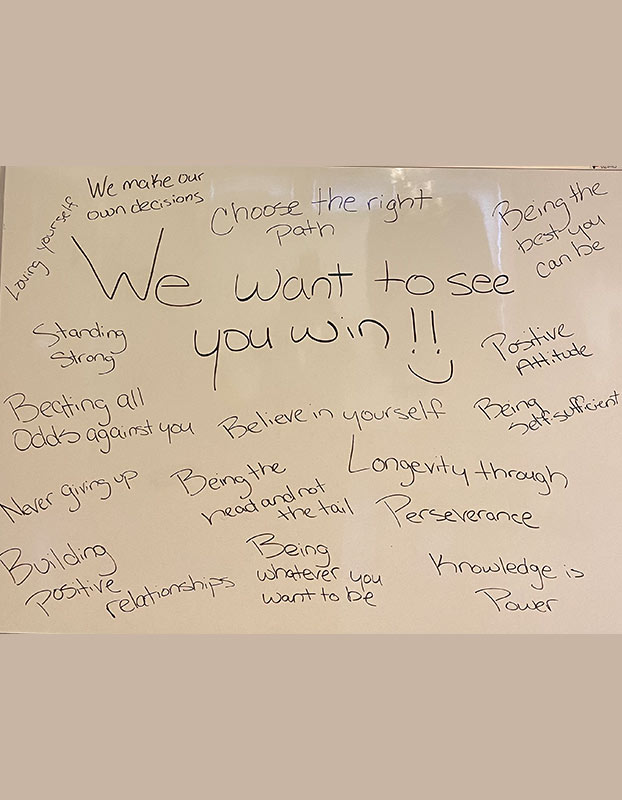 Loving yourself
We make our
own decisions
Choose the right
path
Being the
best you
can be
We want to see
you win!!
Standing
Strong
Positive
Attitude
Beating all
Odds against you
Believe in yourself
Being
self-sufficient
Never giving up
Being the
head and not
the tail
Longevity through
Perseverance
Building
positive
relationships
Being
whatever you
want to be
Knowledge is
Power